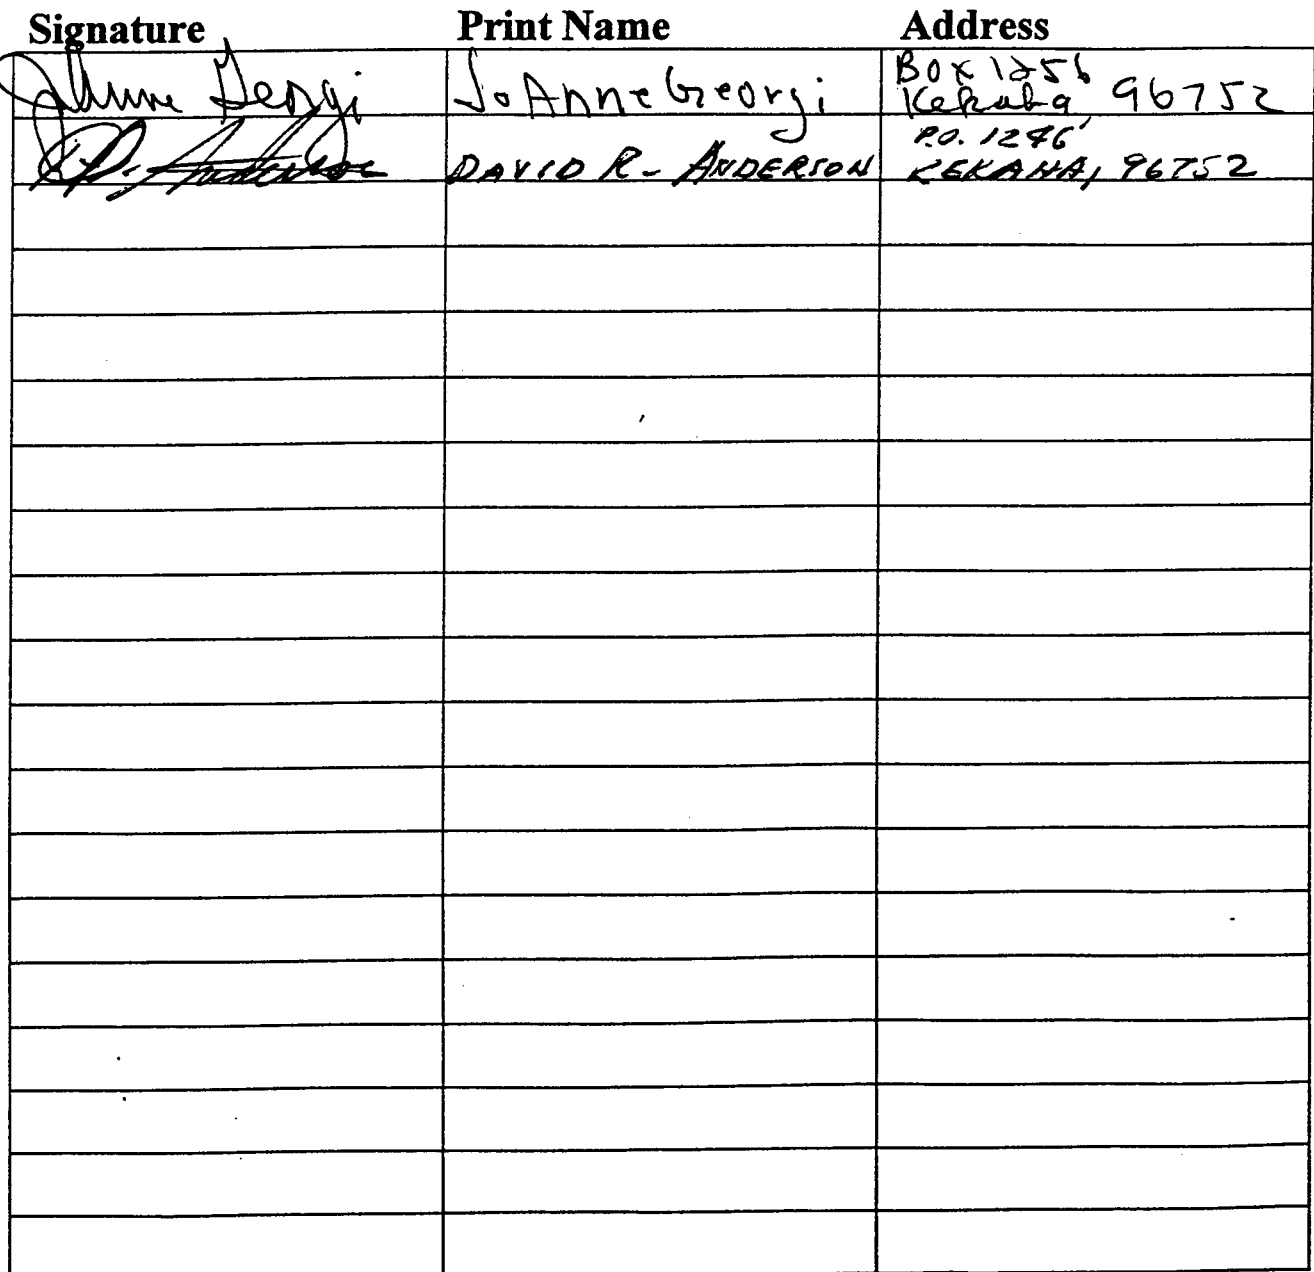 Signature Print Name Address
JoAnne Georgi JoAnne Georgi Box 1256
Kekaha, 96752
P.O. 1246
D. Anderson DAVID R- ANDERSON KEKAHA, 96752